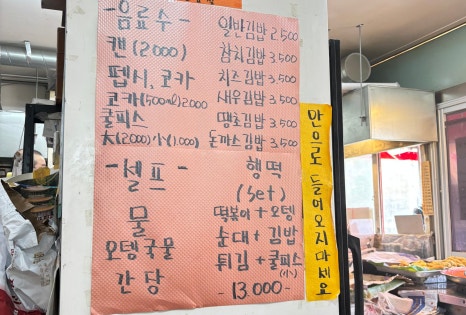 -음료수-
캔 (2.000)
펩시, 코카
코카(500ml)2.000
쿨피스
大(2.000)小(1.000)
일반김밥 2.500
참치김밥 3.500
치즈김밥 3.500
새우김밥 3.500
땡초김밥 3.500
돈까스김밥 3.500
-셀프-
물
오뎅국물
간당
행떡
(set)
떡볶이+오뎅
순대+김밥
튀김+쿨피스
(小)
-13.000-
안으로 들어오지마세요